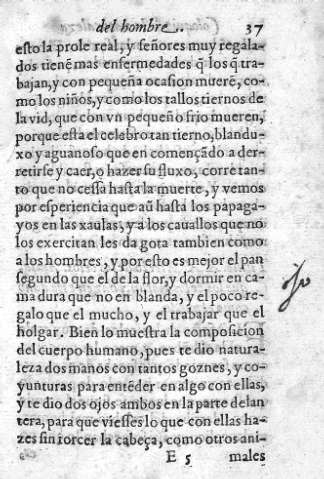 del hombre. 37
esto la prole real, y señores muy regala-
dos tienẽ mas enfermedades q̃ los q̃ tra-
bajan, y con pequeña ocasion muerẽ, co-
mo los niños, y como los tallos tiernos de
la vid, que con vn pequeño frio mueren,
porque esta el celebro tan tierno, blandu-
xo y aguanoso que en començãdo a der-
retirse y caer, o hazer su fluxo, corre tan-
to que no cessa hasta la muerte, y vemos
por esperiencia que aũ hasta los papaga-
yos en las xaulas, y a los cauallos que no
los exercitan les da gota tambien como
a los hombres, y por esto es mejor el pan
segundo que el de la flor, y dormir en ca-
ma dura que no en blanda, y el poco re-
galo que el mucho, y el trabajar que el
holgar. Bien lo muestra la composicion
del cuerpo humano, pues te dio natura-
leza dos manos con tantos goznes, y co-
yunturas para entẽder en algo con ellas,
y te dio dos ojos ambos en la parte delan
tera, para que viesses lo que con ellas ha-
zes sin torcer la cabeça, como otros ani-
E 5 males